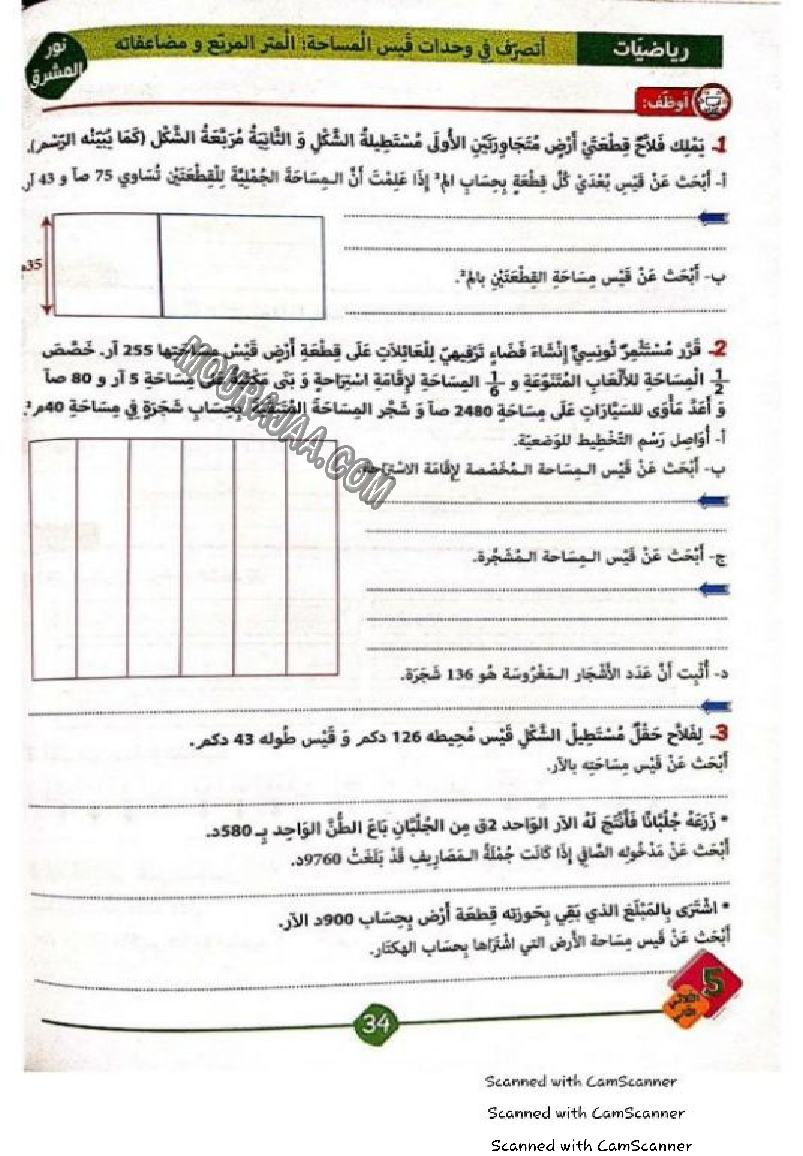 رياضيّات
أتصرّف في وحدات قيس المساحة: المتر المربّع و مضاعفاته
نور المشرق
أوظّف:
1- يَمْلِك فَلاَّحٌ قِطْعَتَيْ أَرْضٍ مُتَجَاوِرَتَيْنِ الأُولَى مُسْتَطِيلَةُ الشَّكْلِ وَ الثَّانِيَةُ مُرَبَّعَةُ الشَّكْل (كَمَا يُبَيّنُه الرّسْم).
أ- أَبْحَث عَنْ قَيْسِ بُعْدَيْ كُلِّ قِطْعَةٍ بِحِسَابِ الم إِذَا عَلِمْتَ أَنَّ الـمِسَاحَةَ الجُمْلِيَّةَ لِلْقِطْعَتَيْنِ تُسَاوِي 75 صآ و 43 آر.
35م
ب- أَبْحَث عَنْ قَيْس مِسَاحَةِ القِطْعَتَيْنِ بالم².
2- قَرَّر مُسْتَثْمِرٌ تُونِسِيٌّ إِنْشَاءَ فَضَاءٍ تَرْفِيهِيٍّ لِلْعَائِلاَتِ عَلَى قِطْعَةِ أَرْضٍ قَيْسُ مِسَاحَتِها 255 آر. خَصَّصَ
1/2 الْمِسَاحَةِ للأَلْعَابِ المُتَنَوِّعَةِ و 1/6 المِسَاحَةِ لإِقَامَةِ اسْتِرَاحَةٍ وَ بَنَى مَكْتَبَةً عَلَى مِسَاحَةِ 5 آر و 80 صآ
وَ أَعَدَّ مَأْوًى للسَيَّارَاتِ عَلَى مِسَاحَةِ 2480 صآ وَ شَجَّر المِسَاحَةَ المُتَبَقِّيَةَ بِحِسَابِ شَجَرَةٍ فِي مِسَاحَةِ 40م².
أ- أُوَاصِل رَسْم التّخْطِيط للوَضعيّة.
ب- أَبْحَث عَنْ قَيْسِ الـمِسَاحة الـمُخَصّصة لإِقَامَة الاسْتِرَاحَة.
ج- أَبْحَث عَنْ قَيْسِ الـمِسَاحة الـمُشَجّرة.
د- أُثْبِت أَنَّ عَدَد الأَشْجَار الـمَغْرُوسَة هُو 136 شَجَرَة.
3- لِفَلاَّحِ حَقْلٌ مُسْتَطِيلُ الشَّكْلِ قَيْس مُحِيطه 126 دكم وَ قَيْس طُوله 43 دكم.
أَبْحَث عَنْ قَيْس مِسَاحَتِه بالآر.
* زَرَعَهُ جُلْبَانًا فَأَنْتَجَ لَهُ الآر الوَاحد 2ق مِن الجُلْبَانِ بَاعَ الطُّنَّ الوَاحِد بِـ 580د.
أَبْحَث عَنْ مَدْخُولِه الصَّافِي إِذَا كَانَت جُمْلَةُ الـمَصَارِيفِ قَدْ بَلَغَتْ 9760د.
* اشْتَرَى بِالمَبْلَغِ الذي بَقِي بِحَوزتِه قِطعَة أَرْض بِحِسَابِ 900د الآر.
أَبْحَث عَنْ قَيس مِسَاحة الأَرض التي اشْتَرَاها بِحسَاب الهكتَار.
5
34
MOURAJAA.COM
Scanned with CamScanner
Scanned with CamScanner
Scanned with CamScanner